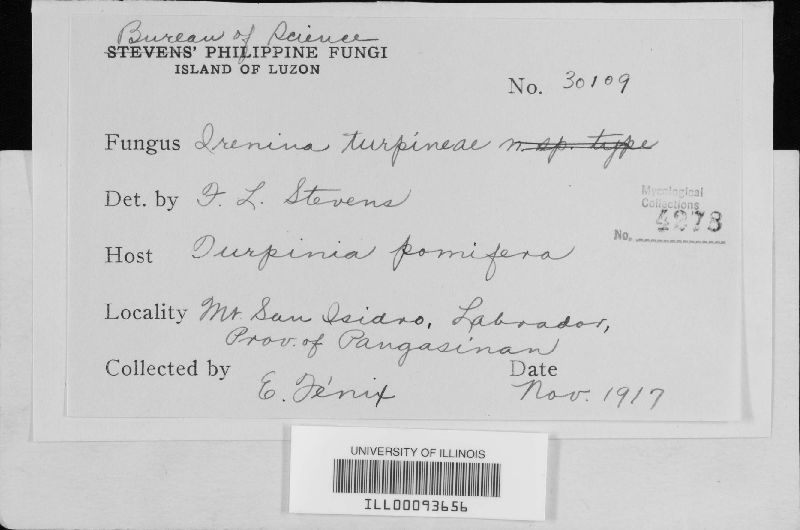 Bureau of Science
STEVENS' PHILIPPINE FUNGI
ISLAND OF LUZON
No. 30109
Fungus Irenina turpineae n. sp. type
Det. by F. L. Stevens
Mycological
Collections
No. 4278
Host Turpinia pomifera
Locality Mt San Isidro, Labrador,
Prov. of Pangasinan
Collected by
E. Fénix
Date
Nov. 1917
UNIVERSITY OF ILLINOIS
ILL00093656